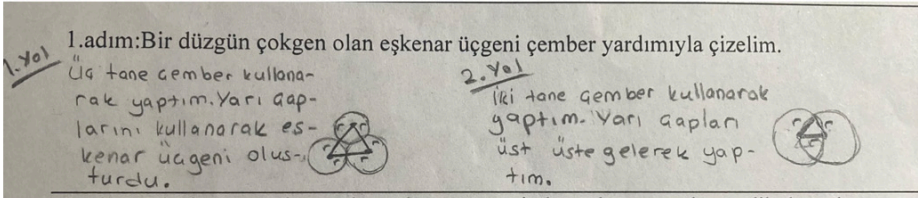 1.adım:Bir düzgün çokgen olan eşkenar üçgeni çember yardımıyla çizelim.
1.Yol
Üç tane çember kullana-
rak yaptım. Yarı çap-
larını kullanarak eş-
kenar üçgeni oluş-
turdu.
2.Yol
İki tane çember kullanarak
yaptım. Yarı çapları
üst üste gelerek yap-
tım.